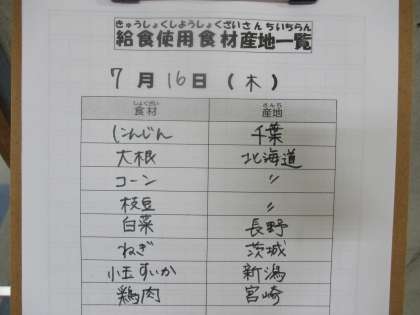 きゅうしょくしようしょくざいさんちいちらん
給食使用食材産地一覧
7月16日(木)
しょくざい さんち
食材 産地
にんじん 千葉
大根 北海道
コーン 〃
枝豆 〃
白菜 長野
ねぎ 茨城
小玉すいか 新潟
鶏肉 宮崎